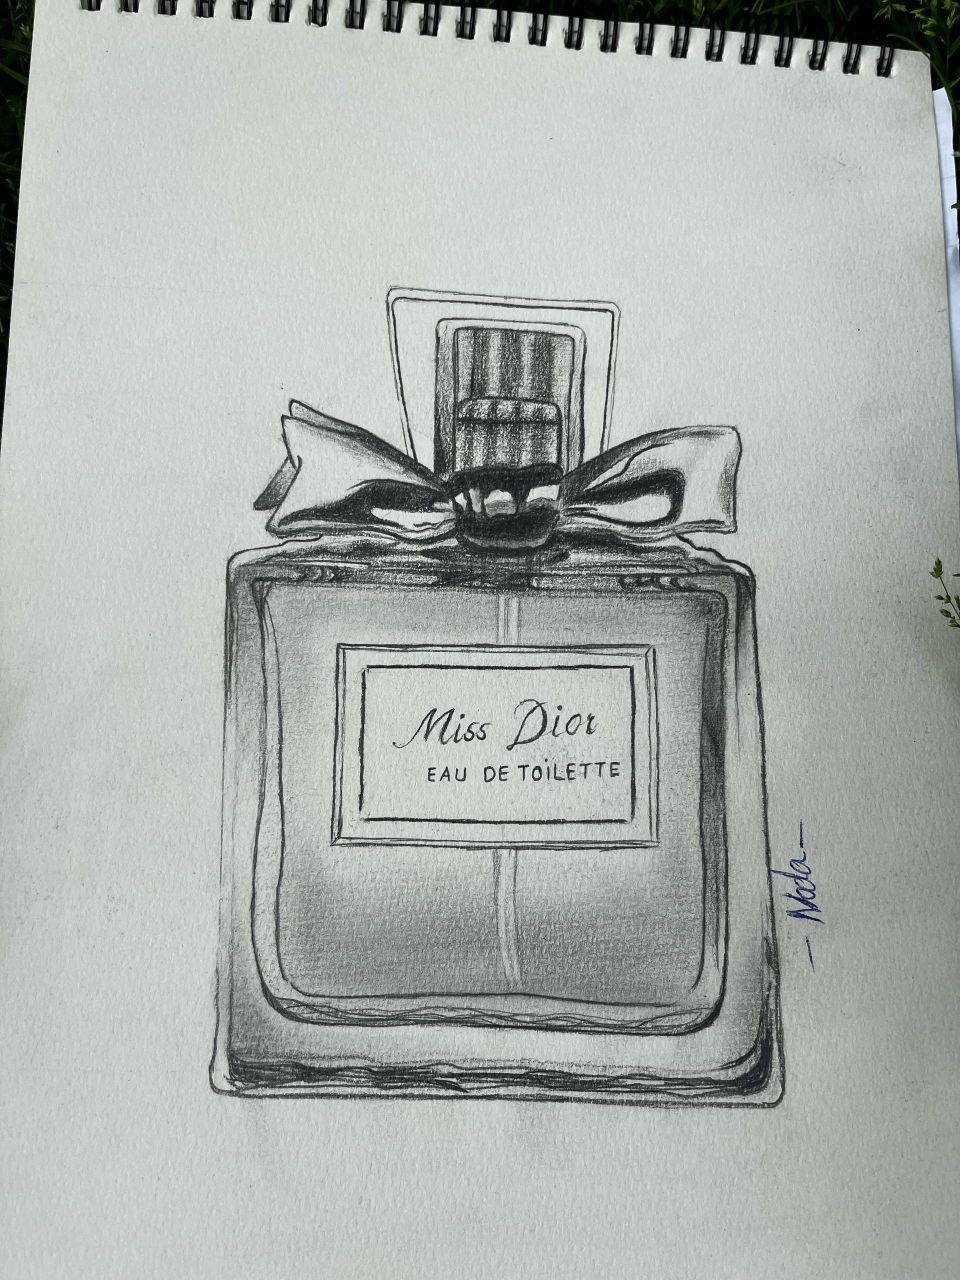 Miss Dior
EAU DE TOiLETTE
- Nada -